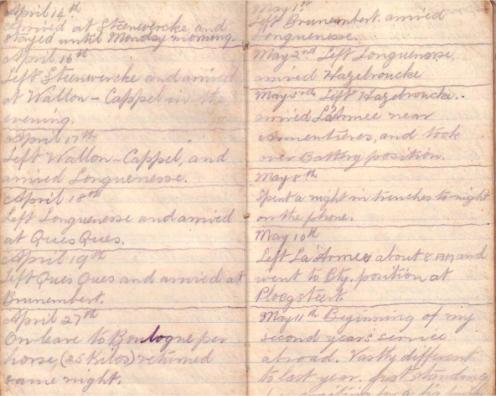 April 14th
Arrived at Steenevercke, and
stayed until Monday morning
April 16th
Left Steenevercke and arrived
at Wallon-Cappel in the
evening.
April 17th
Left Wallon-Cappel, and
arrived Longuenesse.
April 18th
Left Longuenesse and arrived
at Ques Ques.
April 19th
Left Ques Ques and arrived at
Brunembert.
April 27th
On leave to Boulogne per
horse, (25 Kilos) returned
same night.
May 1st
Left Brunembert. arrived
Longuenesse.
May 2nd Left Longuenesse,
arrived Hazebroucke
May 3rd Left Hazebroucke.
arrived near
Armentières, and took
over Battery position.
May 8th
Spent a night in trenches to night
on the phone.
May 10th
Left about 8 PM, and
went to Bty. position at
Ploegsteert
May 11th Beginning of my
second years service
abroad. Vastly different
to last year. first standing